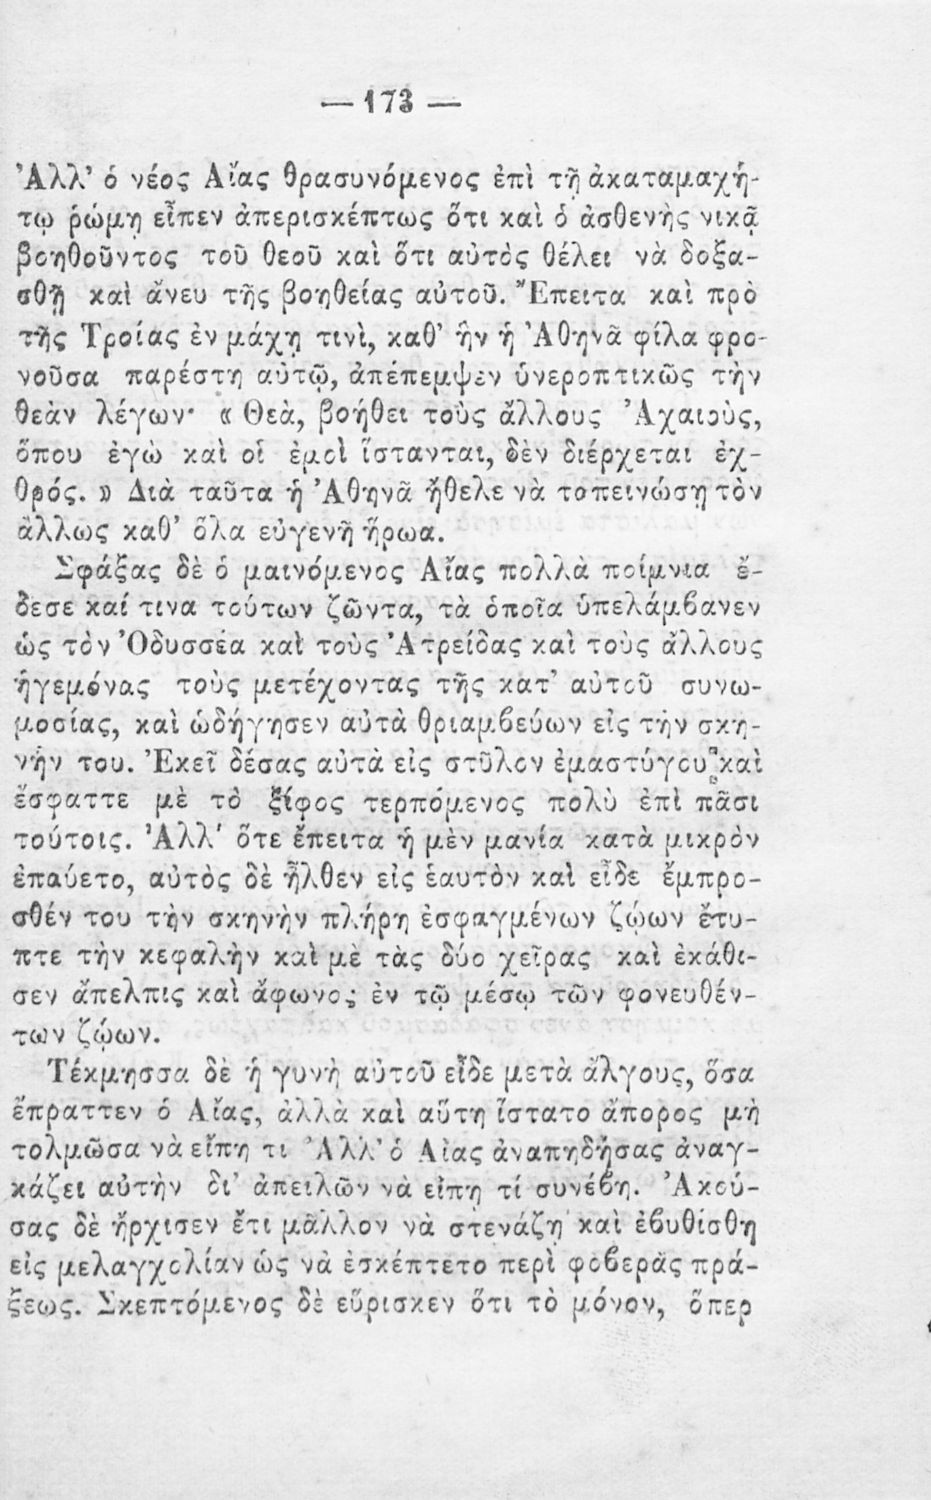 — 173 —
Ἀλλ' ὁ νέος Αἴας θρασυνόμενος ἐπὶ τῇ ἀκαταμαχή-
τῳ ῥώμῃ εἶπεν ἀπερισκέπτως ὅτι καὶ ὁ ἀσθενὴς νικᾷ
βοηθοῦντος τοῦ θεοῦ καὶ ὅτι αὐτὸς θέλει νὰ δοξα-
σθῇ καὶ ἄνευ τῆς βοηθείας αὐτοῦ. Ἔπειτα καὶ πρὸ
τῆς Τροίας ἐν μάχῃ τινὶ, καθ' ἣν ἡ Ἀθηνᾶ φίλα φρο-
νοῦσα παρέστη αὐτῷ, ἀπέπεμψεν ὑνεροπτικῶς τὴν
θεὰν λέγων· « Θεὰ, βοήθει τοὺς ἄλλους Ἀχαιοὺς,
ὅπου ἐγὼ καὶ οἱ ἐμοὶ ἵστανται, δὲν διέρχεται ἐχ-
θρός. » Διὰ ταῦτα ἡ Ἀθηνᾶ ἤθελε νὰ ταπεινώσῃ τὸν
ἄλλως καθ' ὅλα εὐγενῆ ἥρωα.
Σφάξας δὲ ὁ μαινόμενος Αἴας πολλὰ ποίμνια ἔ-
δεσε καί τινα τούτων ζῶντα, τὰ ὁποῖα ὑπελάμβανεν
ὡς τὸν Ὀδυσσέα καὶ τοὺς Ἀτρείδας καὶ τοὺς ἄλλους
ἡγεμόνας τοὺς μετέχοντας τῆς κατ' αὐτοῦ συνω-
μοσίας, καὶ ὡδήγησεν αὐτὰ θριαμβεύων εἰς τὴν σκη-
νήν του. Ἐκεῖ δέσας αὐτὰ εἰς στῦλον ἐμαστύγου καὶ
ἔσφαττε μὲ τὸ ξίφος τερπόμενος πολὺ ἐπὶ πᾶσι
τούτοις. Ἀλλ' ὅτε ἔπειτα ἡ μὲν μανία κατὰ μικρὸν
ἐπαύετο, αὐτὸς δὲ ἦλθεν εἰς ἑαυτὸν καὶ εἶδε ἔμπρο-
σθέν του τὴν σκηνὴν πλήρη ἐσφαγμένων ζῴων ἔτυ-
πτε τὴν κεφαλὴν καὶ μὲ τὰς δύο χεῖρας καὶ ἐκάθι-
σεν ἄπελπις καὶ ἄφωνος ἐν τῷ μέσῳ τῶν φονευθέν-
των ζῴων.
Τέκμησσα δὲ ἡ γυνὴ αὐτοῦ εἶδε μετὰ ἄλγους, ὅσα
ἔπραττεν ὁ Αἴας, ἀλλὰ καὶ αὕτη ἵστατο ἄπορος μὴ
τολμῶσα νὰ εἴπῃ τι Ἀλλ' ὁ Αἴας ἀναπηδήσας ἀναγ-
κάζει αὐτὴν δι' ἀπειλῶν νὰ εἴπῃ τί συνέβη. Ἀκού-
σας δὲ ἤρχισεν ἔτι μᾶλλον νὰ στενάζῃ καὶ ἐβυθίσθη
εἰς μελαγχολίαν ὡς νὰ ἐσκέπτετο περὶ φοβερᾶς πρά-
ξεως. Σκεπτόμενος δὲ εὕρισκεν ὅτι τὸ μόνον, ὅπερ